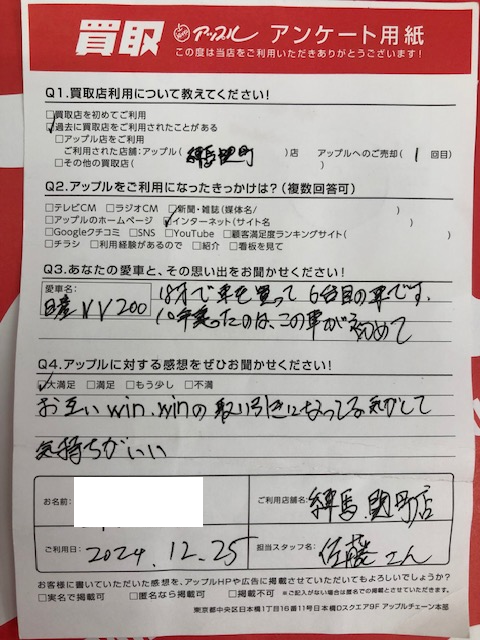 買取 アップル アンケート用紙
この度は当店をご利用いただきありがとうございます！
Q1.買取店利用について教えてください！
□買取店を初めてご利用
☑過去に買取店をご利用されたことがある
□アップル店をご利用
ご利用された店舗:アップル( 練馬関町 )店 アップルへのご売却( 1 回目)
□その他の買取店( )
Q2.アップルをご利用になったきっかけは？(複数回答可)
□テレビCM □ラジオCM □新聞・雑誌(媒体名/ )
□アップルのホームページ ☑インターネット(サイト名 )
□Googleクチコミ □SNS □YouTube □顧客満足度ランキングサイト( )
□チラシ □利用経験があるので □紹介 □看板を見て
Q3.あなたの愛車と、その思い出をお聞かせください！
愛車名:
日産NV200
18才で車を買って6台目の車です。
10年乗ったのは、この車が初めて
Q4.アップルに対する感想をぜひお聞かせください！
☑大満足 □満足 □もう少し □不満
お互いwin.winの取り引きになってる気がして
気持ちがいい
お名前:
ご利用店舗名: 練馬関町店
ご利用日: 2024.12.25
担当スタッフ名: 佐藤さん
お客様に書いていただいた感想を、アップルHPや広告に掲載させていただいてもよろしいでしょうか？
□実名で掲載可 □匿名なら掲載可 □掲載不可 ※ご記入がない場合は匿名での掲載とさせていただきます。
東京都中央区日本橋1丁目16番11号日本橋Dスクエア9F アップルチェーン本部